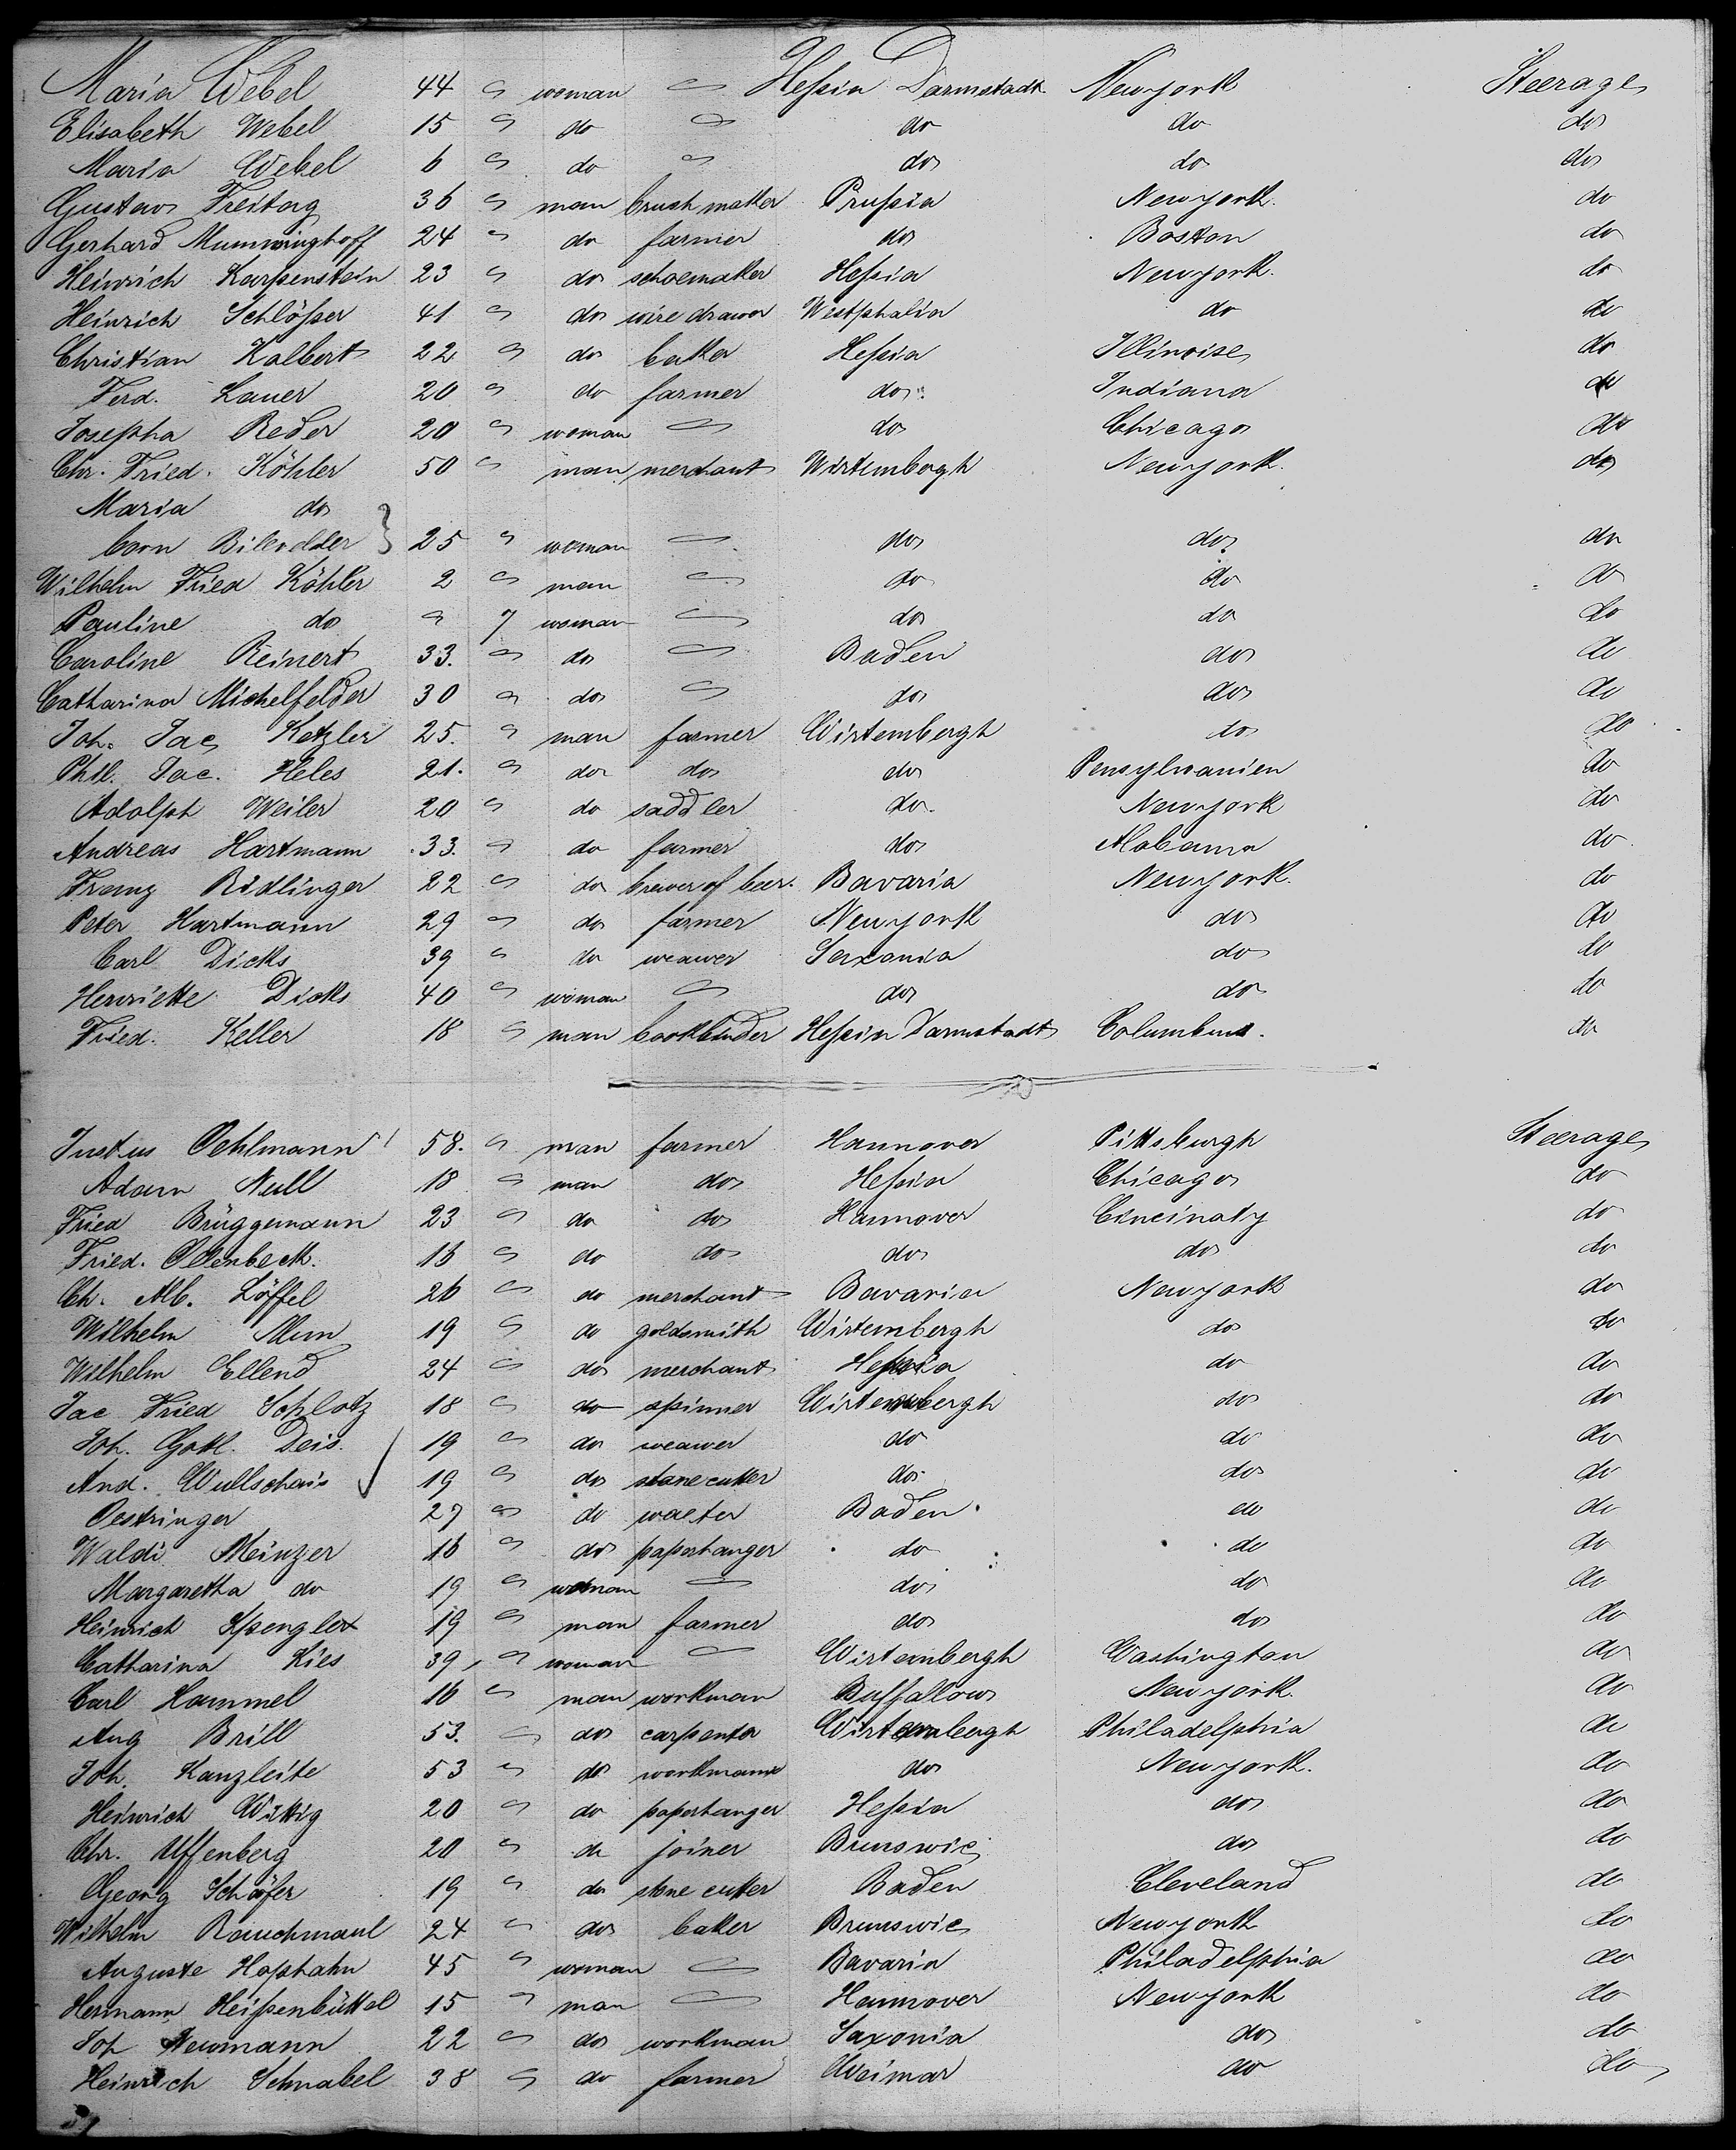 Maria Webel 44 woman Heßia Darmstadt Newyork Steerage
Elisabeth Webel 15 do do do do
Maria Webel 6 do do do do
Gustav Freitag 36 man brush maker Prußia Newyork. do
Gerhard Mumwinghoff 24 do farmer do Boston do
Heinrich Karpenstein 23 do schoemaker Heßia Newyork. do
Heinrich Schlößer 41 do wire drawer Westphalia do do
Christian Kalbert 22 do baker Heßia Illinoise do
Ferd. Lauer 20 do farmer do Indiana do
Josepha Reder 20 woman do Chicago do
Chr. Fried. Köhler 50 man merchant Wirtembergh Newyork. do
Maria do
born 25 woman do do do
Wilhelm Fried Köhler 2 man do do do
Pauline do 7 woman do do do
Caroline Reinert 33. do Baden do do
Catharina Michelfelder 30 do do do do
Joh. Jac Ketzler 25. man farmer Wirtembergh do do
Phil. Jac. Heles 21. do do do Pensylvanien do
Adolph Weiler 20 do saddler do Newyork do
Andreas Hartmann 33. do farmer do Alabama do
Franz Ridlinger 22 do brewer of beer. Bavaria Newyork. do
Peter Hartmann 29 do farmer Newyork do do
Carl Dicks 39 do weawer Saxonia do do
Henriette Dicks 40 woman do do do
Fried. Keller 18 man bookbinder Heßia Darmstadt Columbus. do
Justus Oehlmann 58. man farmer Hannover Pittsburgh Steerage
Adam Null 18 man do Heßia Chicago do
Fried Brüggemann 23 do do Hannover Cincinaty do
Fried. 16 do do do do do
Ch. Alb. Löffel 26 do merchant Bavaria Newyork do
Wilhelm 19 do goldsmith Wirtembergh do do
Wilhelm Ellend 24 do merchant Heßia do do
Jac Fried Schlotz 18 do spinner Wirtembergh do do
Joh. Gottl. Deis. 19 do weawer do do do
And. Wullschleis 19 do stone cutter do do do
Oestringer 27 do waiter Baden do do
Waldi Meinzer 16 do paperhanger do do do
Margaretha do 19 woman do do do
Heinrich Spengler 19 man farmer do do do
Catharina Kies 39 woman Wirtembergh Washington do
Carl Hammel 16 man workman Buffallow Newyork. do
Aug Brill 53. do carpenter Wirtembergh Philadelphia do
Joh. Kanzleite 53 do workman do Newyork. do
Heinrich Wittig 20 do paperhanger Heßia do do
Chr. Uffenberg 20 do joiner Brunswic do do
Georg Schäfer 19 do stone cutter Baden Cleveland do
Wilhelm Rauchmaul 24 do baker Brunswic Newyork do
Auguste Hophahn 45 woman Bavaria Philadelphia do
Hermann Heißenbüttel 15 man Hannover Newyork do
Joh Newmann 22 do workman Saxonia do do
Heinrich Schnabel 38 do farmer Weimar do do